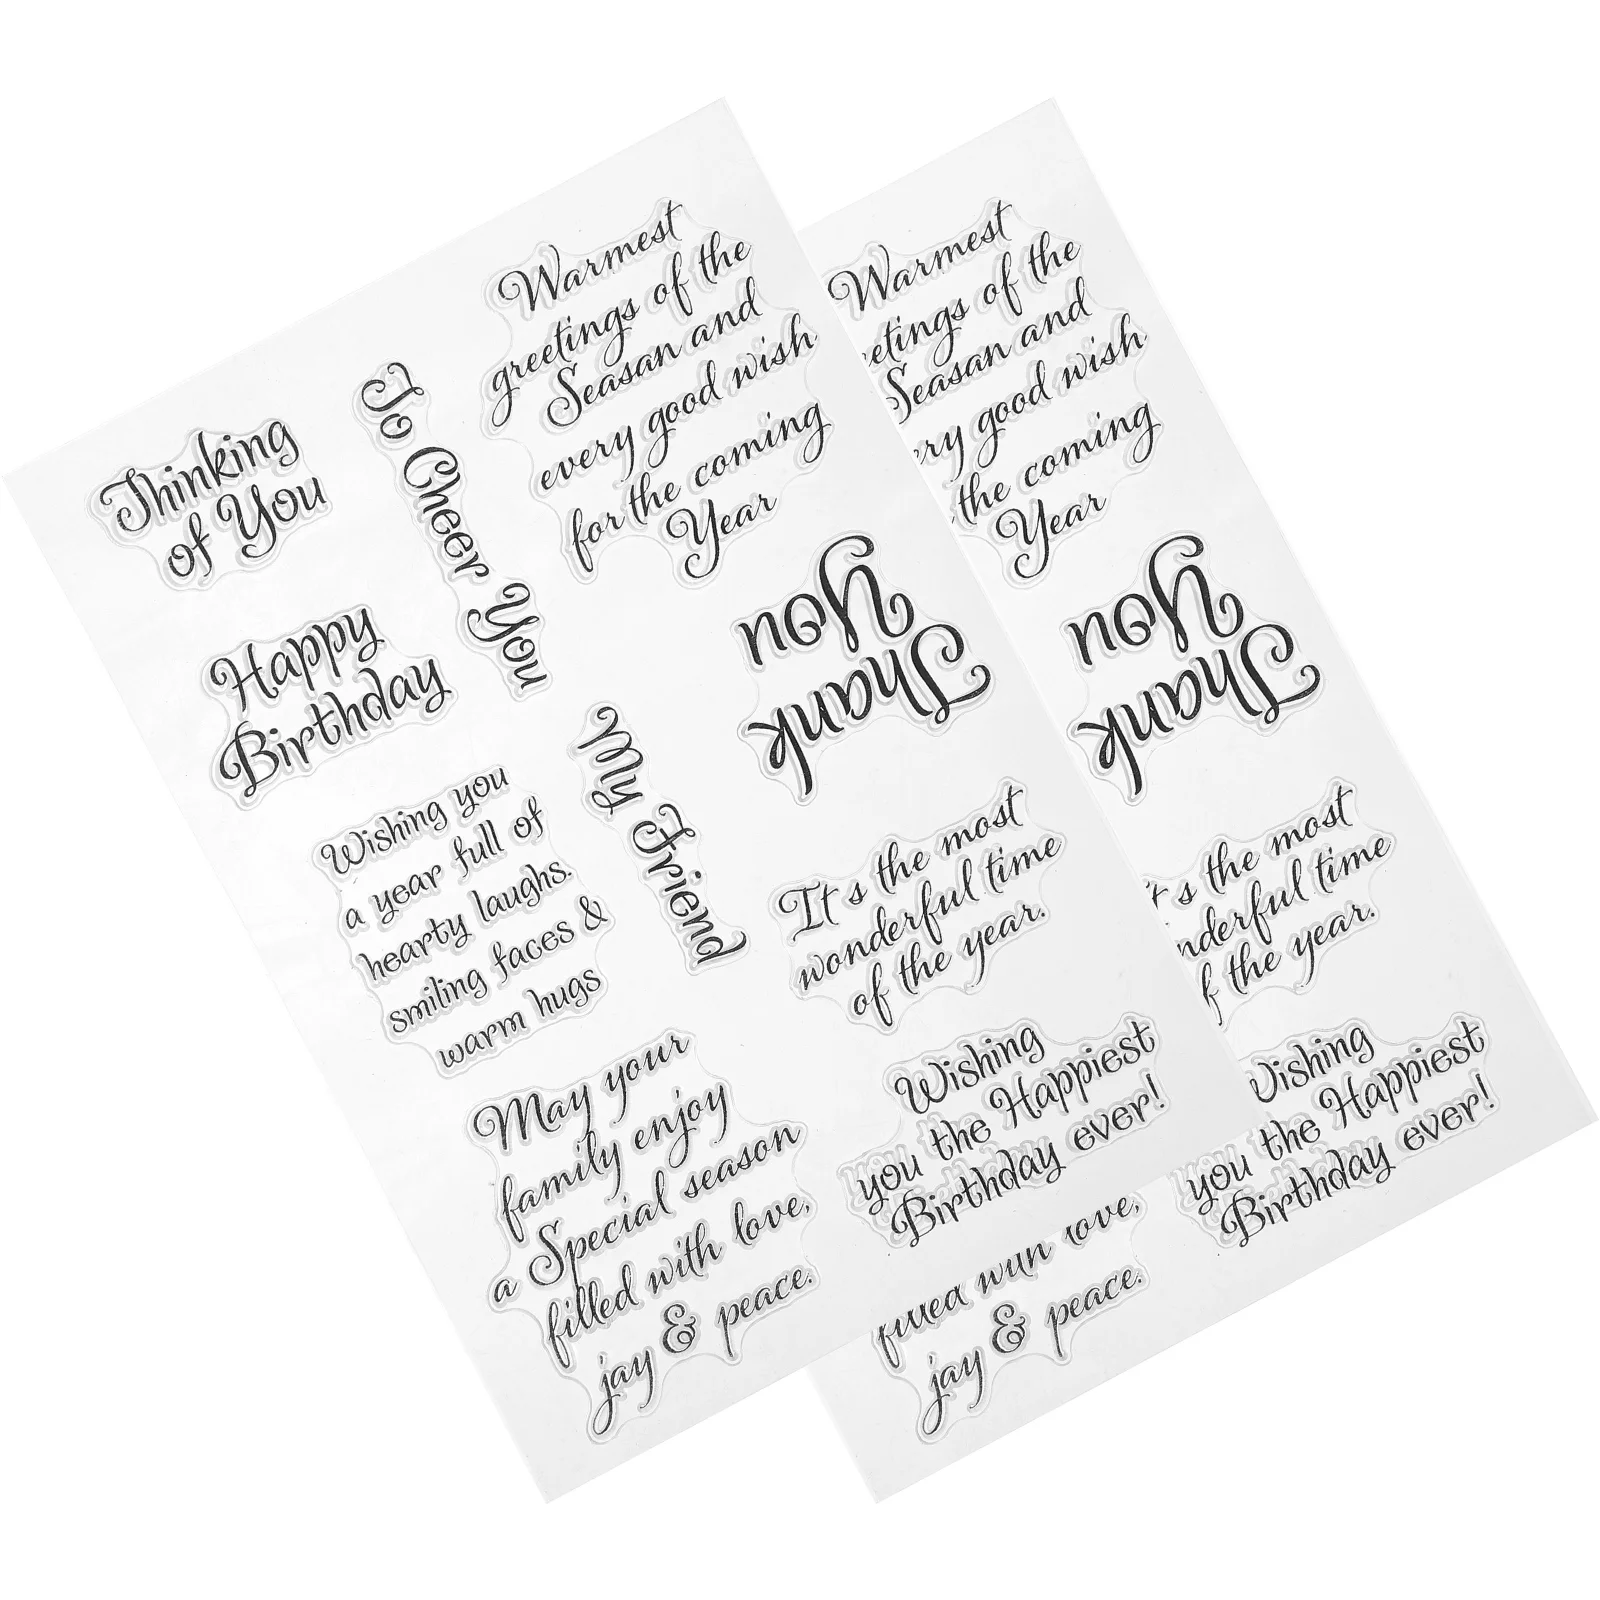 Thinking
of You
To Cheer You
Warmest
greetings of the
Seasan and
every good wish
for the coming
Year
Happy
Birthday
Thank
You
Wishing you
a year full of
hearty laughs.
smiling faces &
warm hugs
My Friend
It's the most
wonderful time
of the year.
May your
family enjoy
a Special season
filled with love,
jay & peace.
Wishing
you the Happiest
Birthday ever!
Warmest
etings of the
Seasan and
ry good wish
the coming
Year
Thank
You
t's the most
nderful time
f the year.
Wishing
you the Happiest
Birthday ever!
filled with love,
jay & peace.